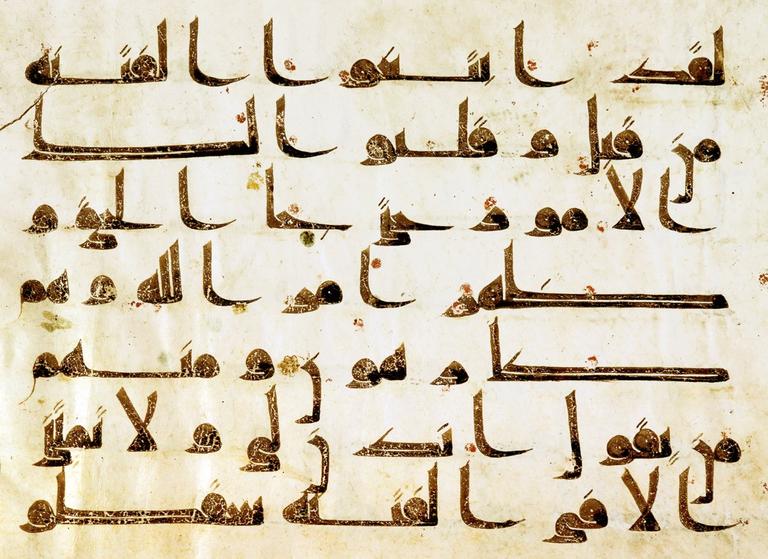 لقد ابتغوا الفتنة
من قبل وقلبوا لك
الامور حتى جا الحق و
ظهر امر الله وهم
كرهون ومنهم
من يقول ائذن لي ولا تفتني
الا في الفتنة سقطوا